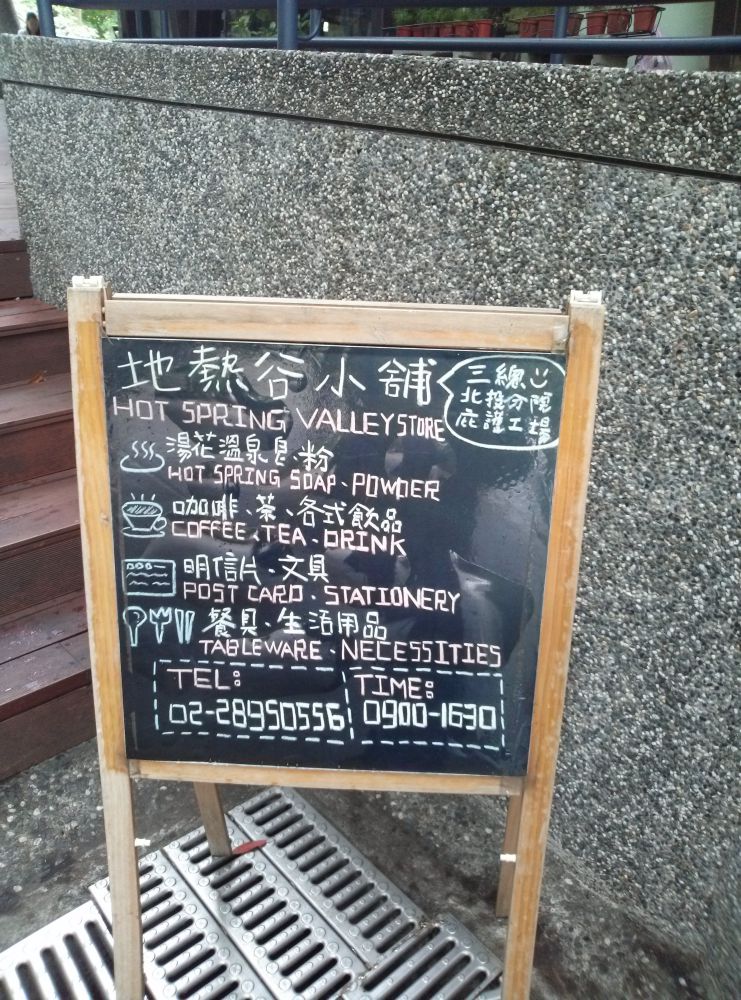 地熱谷小舖
三總
北投分院
庇護工場
HOT SPRING VALLEY STORE
湯花溫泉皂、粉
HOT SPRING SOAP、POWDER
咖啡、茶、各式飲品
COFFEE、TEA、DRINK
明信片、文具
POST CARD、STATIONERY
餐具、生活用品
TABLEWARE、NECESSITIES
TEL:
02-28950556
TIME:
0900-1630